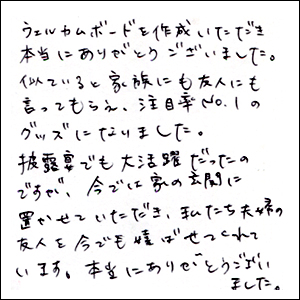 ウェルカムボードを作成いただき
本当にありがとうございました。
似ていると家族にも友人にも
言ってもらえ、注目率No.1の
グッズになりました。
披露宴でも大活躍だったの
ですが、今では家の玄関に
置かせていただき、私たち夫婦の
友人を今でも喜ばせてくれて
います。本当にありがとうござい
ました。